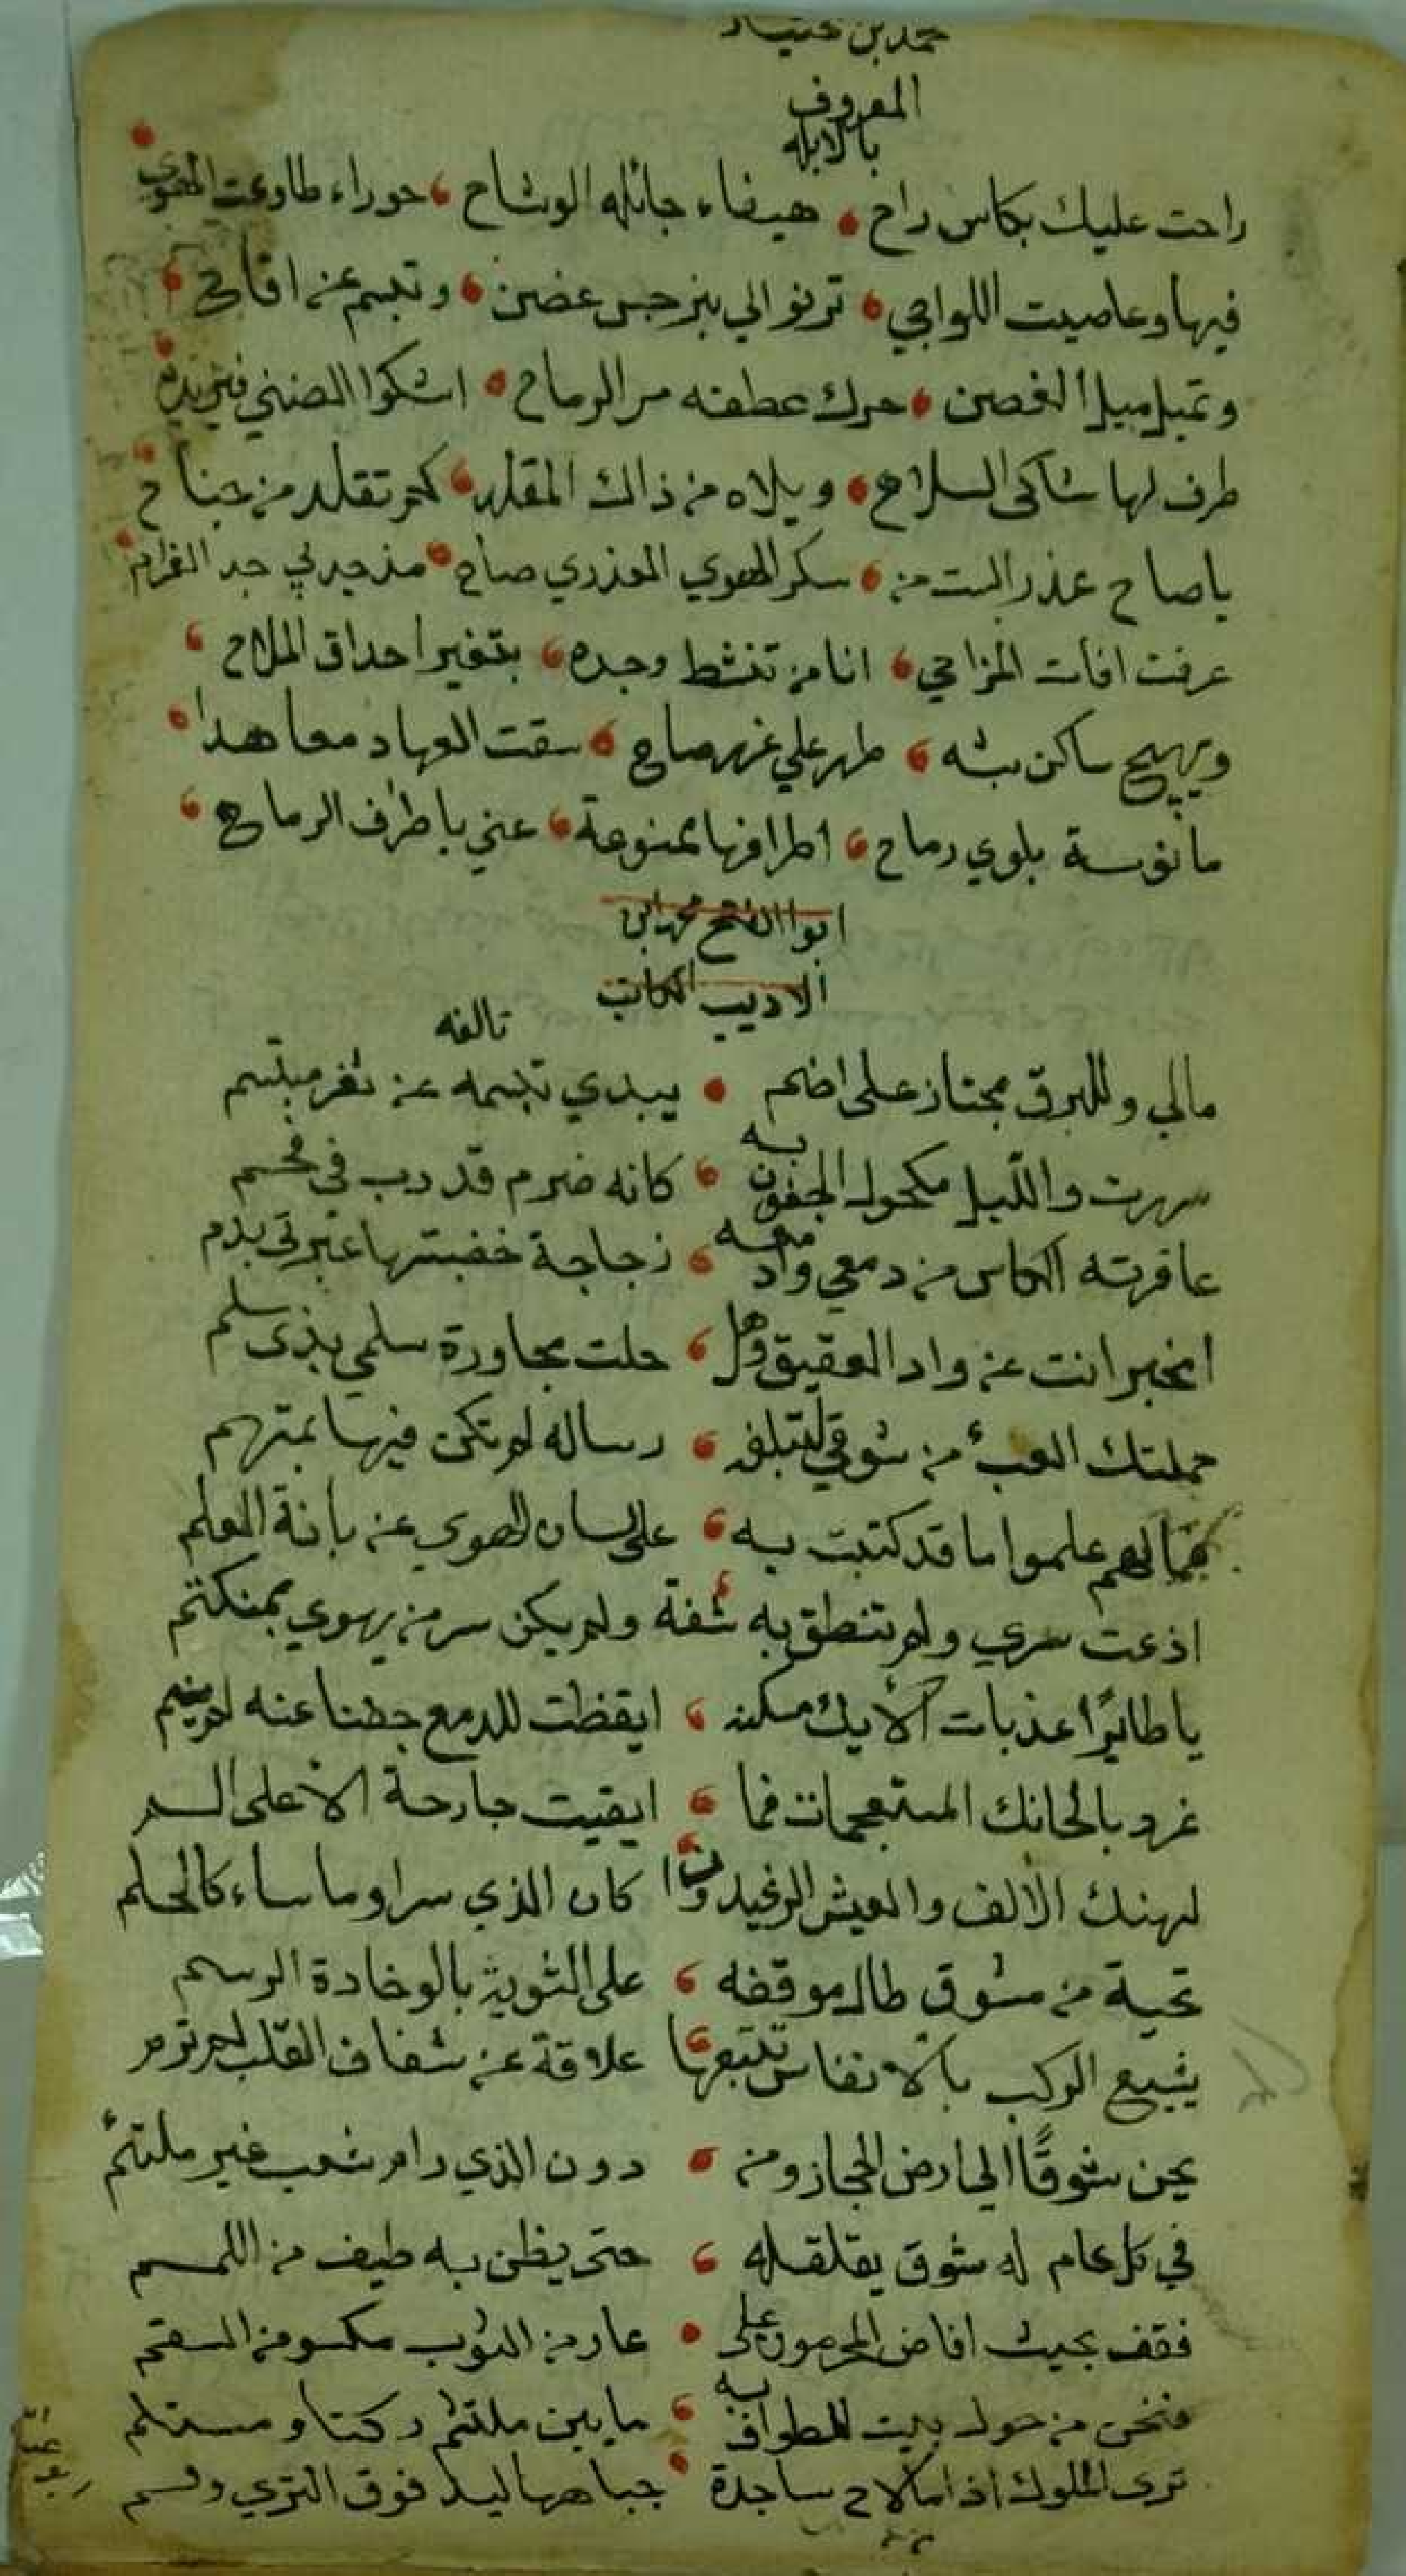 محمد بن بختيار
المعروف
بالابله
راحت عليك بكاس راح هيفاء جائله الوشاح حوراء طاوعت الهوي
فيها وعاصيت اللواحي ترنوالي بنرجس غضن وتبسم عن اقاح
وتميل ميل الغصن حرك عطفه مر الرماح اشكوا الضني فيزيده
طرف لها شاكى السلاح ويلاه من ذاك المقلد كم تقلد من جناح
ياصاح عذرا لست من سكر الهوي العذري صاح مذ جد لي جد الغرام
عرفت افات المزاحي انا من تنشط وجده بتغير احداق الملاح
ويهيج ساكن بثه صاح سقت العهاد معاهدا
مانوسة بلوي رماح اطرافها ممنوعة عني باطراف الرماح
ابوا الفتح محمد ابن
الاديب الكاتب
تالقه
مالي وللبرق مجتاز على اضم يبدي تبسمه عن ثغر مبتسم
سريت والليل مكحول الجفون به كانه ضرم قد دب في فحم
عاقرته الكاس من دمعي وادمعه زجاجة خضبتها عبرتى بدم
امخبر انت عن واد العقيق وهل حلت مجاورة سلمي بذى سلم
حملتك العبء من شوقي لتبلغه رساله لم تكن فيها بمتهم
علموا ما قد كتبت به على لسان الهوي عن بانة العلم
اذعت سري ولم تنطق به شفة ولم يكن سر من يهوي بمنكتم
يا طائرًا عذبات الأيك مسكنه ايقظت للدمع جفنا عنه لم ينم
غرد بالحانك المستعجمات فما ابقيت جارحة الا على الم
لهنك الالف والعيش الرغيد وان كان الذي سرا وما ساء كالحلم
تحية من مشوق طال موقفه على الثوية بالوخادة الرسم
يشيع الركب بالانفاس تتبعها علاقة عن شغاف القلب لم ترم
يحن شوقًا الي ارض الحجاز ومن دون الذي رام شعب غير ملتئم
في كل عام له شوق يقلقله حتى يظن به طيف من اللمم
فقف بحيث افاض المحرمون على عار من الثوب مكسو من السقم
فنحن من حول بيت للطواف به ما بين ملتثم ركنا ومستلم
ترى الملوك اذا ما لاح ساجدة جباهها ليد فوق الثري وفم